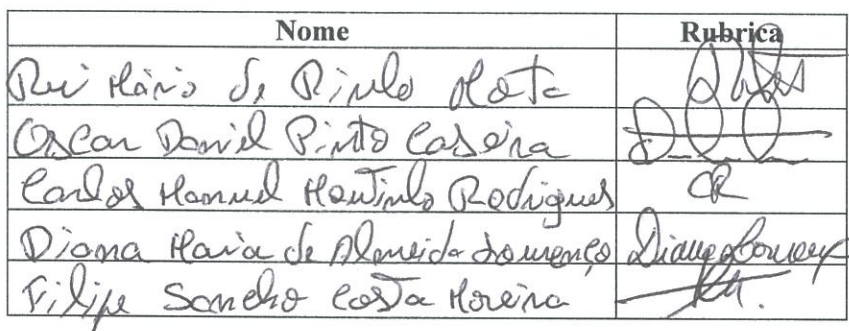 Nome Rubrica
Rui Mário S. Pinto Mota
Oscar Daniel Pinto Caseira
Carlos Manuel Moutinho Rodrigues CR
Diana Maria de Almeida Lourenço Diana Lourenço
Filipe Sancho Costa Moreira